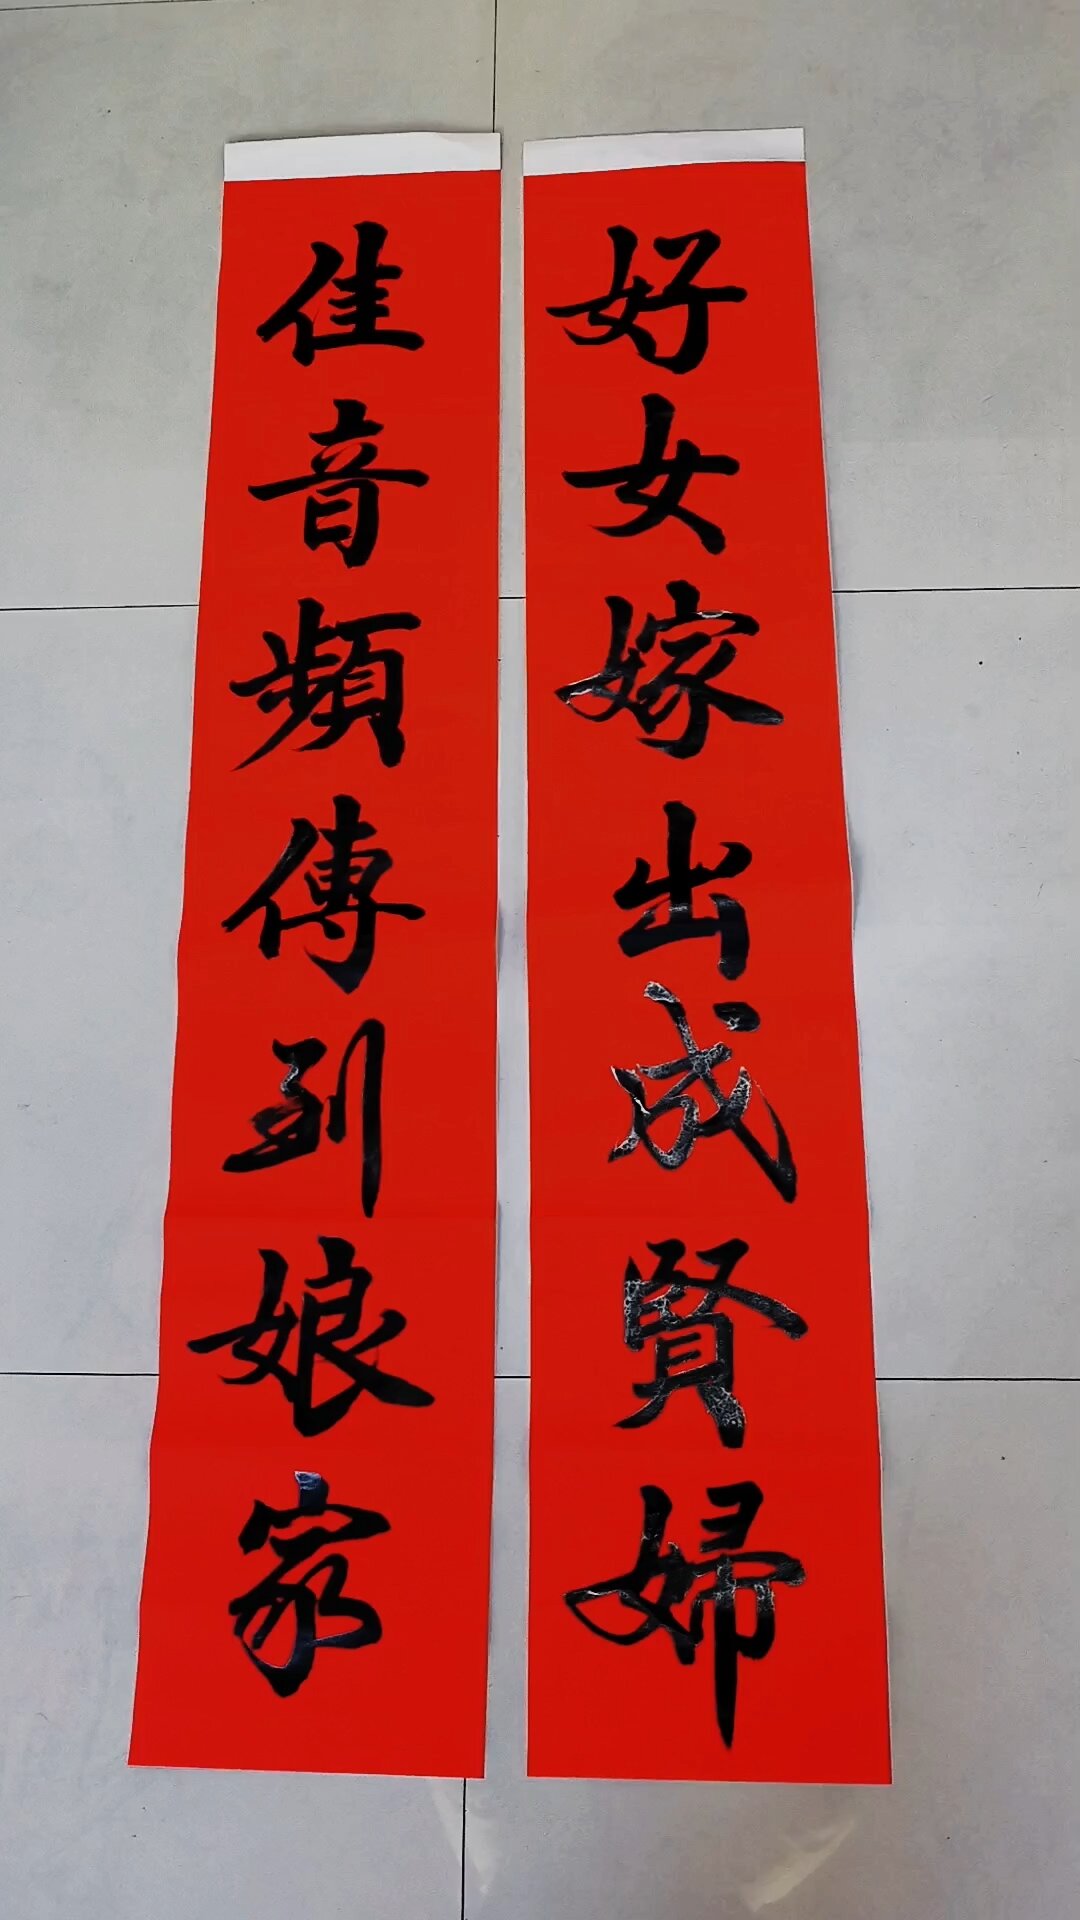 好女嫁出成賢婦
佳音頻傳到娘家